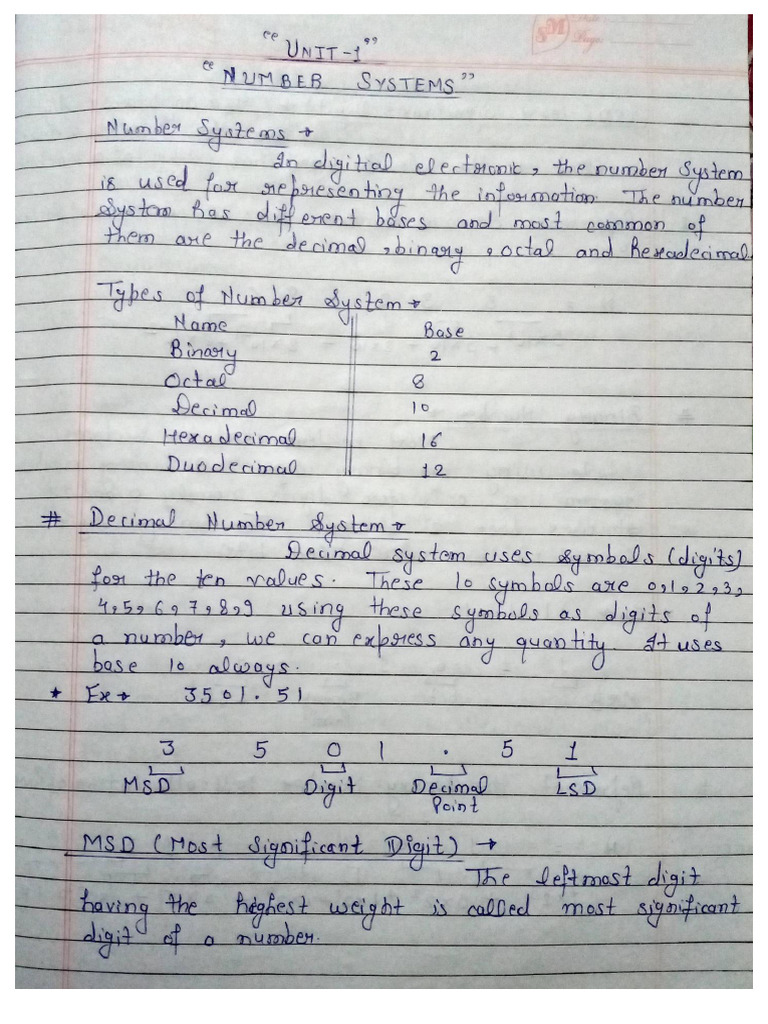 "UNIT-1"
"NUMBER SYSTEMS"
Number Systems →
In digitial electronic, the number System
is used for representing the information. The number
System has different bases and most common of
them are the decimal, binary, octal and Hexadecimal
Types of Number System →
Name Base
Binary 2
Octal 8
Decimal 10
Hexadecimal 16
Duodecimal 12
# Decimal Number System →
Decimal system uses symbols (digits)
for the ten values. These 10 symbols are 0,1,2,3,
4,5,6,7,8,9 using these symbols as digits of
a number, we can express any quantity. It uses
base 10 always.
* Ex → 3501.51
3 5 0 1 . 5 1
MSD Digit Decimal LSD
Point
MSD (Most Significant Digit) →
The leftmost digit
having the highest weight is called most significant
digit of a number.